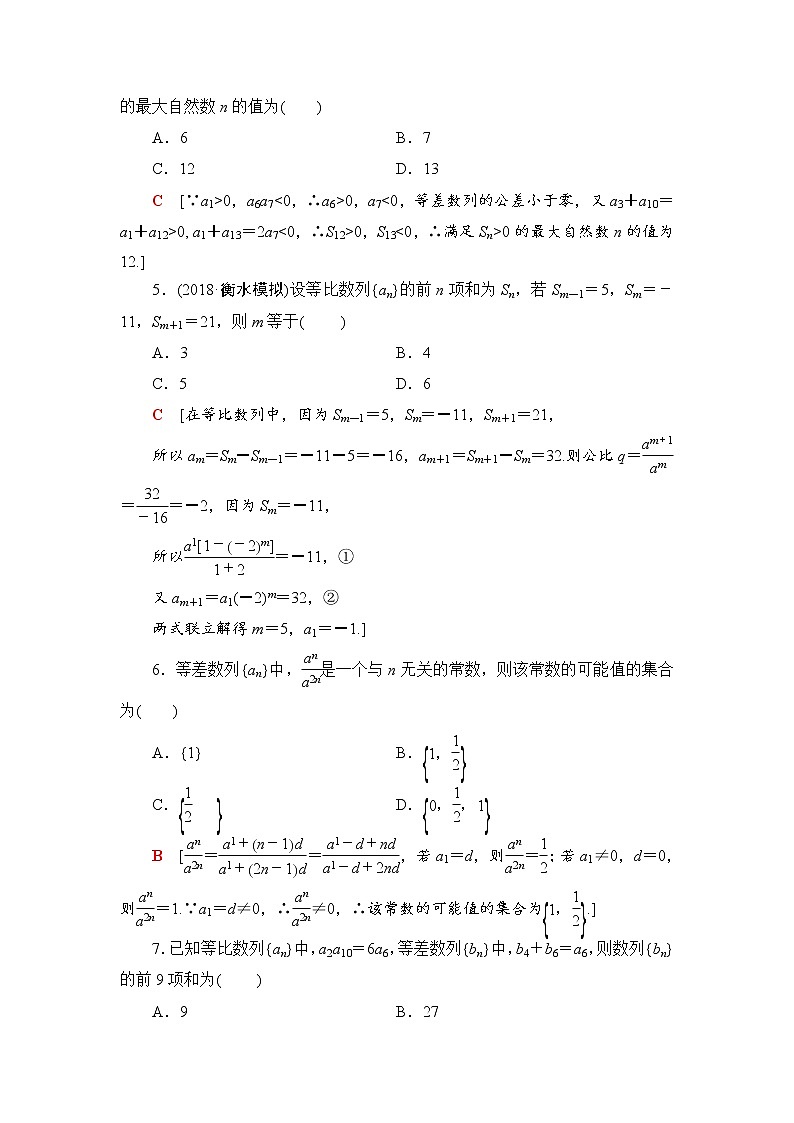 的最大自然数 n 的值为(　　)
A．6　　B．7
C．12　　D．13
C　[∵a₁>0，a₆a₇<0，∴a₆>0，a₇<0，等差数列的公差小于零，又 a₃＋a₁₀＝
a₁＋a₁₂>0, a₁＋a₁₃＝2a₇<0，∴S₁₂>0，S₁₃<0，∴满足 Sₙ>0 的最大自然数 n 的值为
12.]
5．(2018·衡水模拟)设等比数列{aₙ}的前 n 项和为 Sₙ，若 Sₘ₋₁＝5，Sₘ＝－
11，Sₘ₊₁＝21，则 m 等于(　　)
A．3　　B．4
C．5　　D．6
C　[在等比数列中，因为 Sₘ₋₁＝5，Sₘ＝－11，Sₘ₊₁＝21，
所以 aₘ＝Sₘ－Sₘ₋₁＝－11－5＝－16，aₘ₊₁＝Sₘ₊₁－Sₘ＝32.则公比 q＝am＋1/am
＝32/－16＝－2，因为 Sₘ＝－11，
所以a1[1－(－2)ᵐ]/1＋2＝－11，①
又 aₘ₊₁＝a₁(－2)ᵐ＝32，②
两式联立解得 m＝5，a₁＝－1.]
6．等差数列{aₙ}中，an/a2n是一个与 n 无关的常数，则该常数的可能值的集合
为(　　)
A．{1}　　B．{1，1/2}
C．{1/2　}　　D．{0，1/2，1}
B　[an/a2n＝a1＋(n－1)d/a1＋(2n－1)d＝a1－d＋nd/a1－d＋2nd，若 a₁＝d，则an/a2n＝1/2；若 a₁≠0，d＝0，
则an/a2n＝1.∵a₁＝d≠0，∴an/a2n≠0，∴该常数的可能值的集合为{1，1/2}.]
7．已知等比数列{aₙ}中，a₂a₁₀＝6a₆，等差数列{bₙ}中，b₄＋b₆＝a₆，则数列{bₙ}
的前 9 项和为(　　)
A．9　　B．27